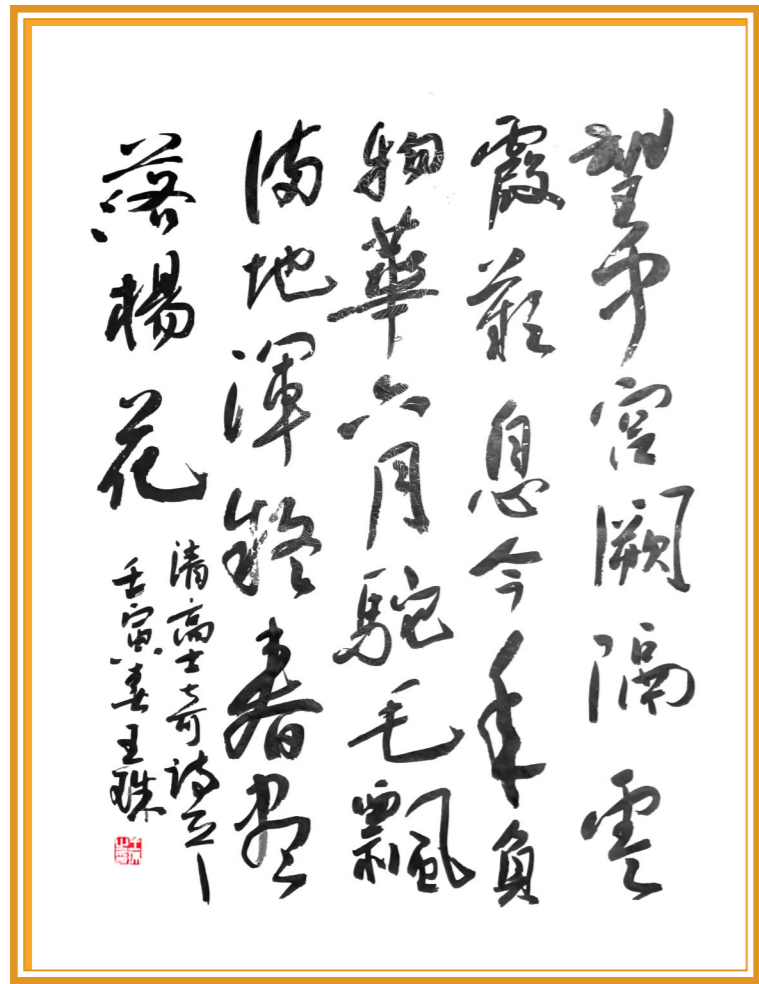 望帝宮闕隔雲
霞歎息今年負
物華六月駝毛飄
滿地渾疑春盡
落楊花
清高士奇詩之一
壬寅春王珠